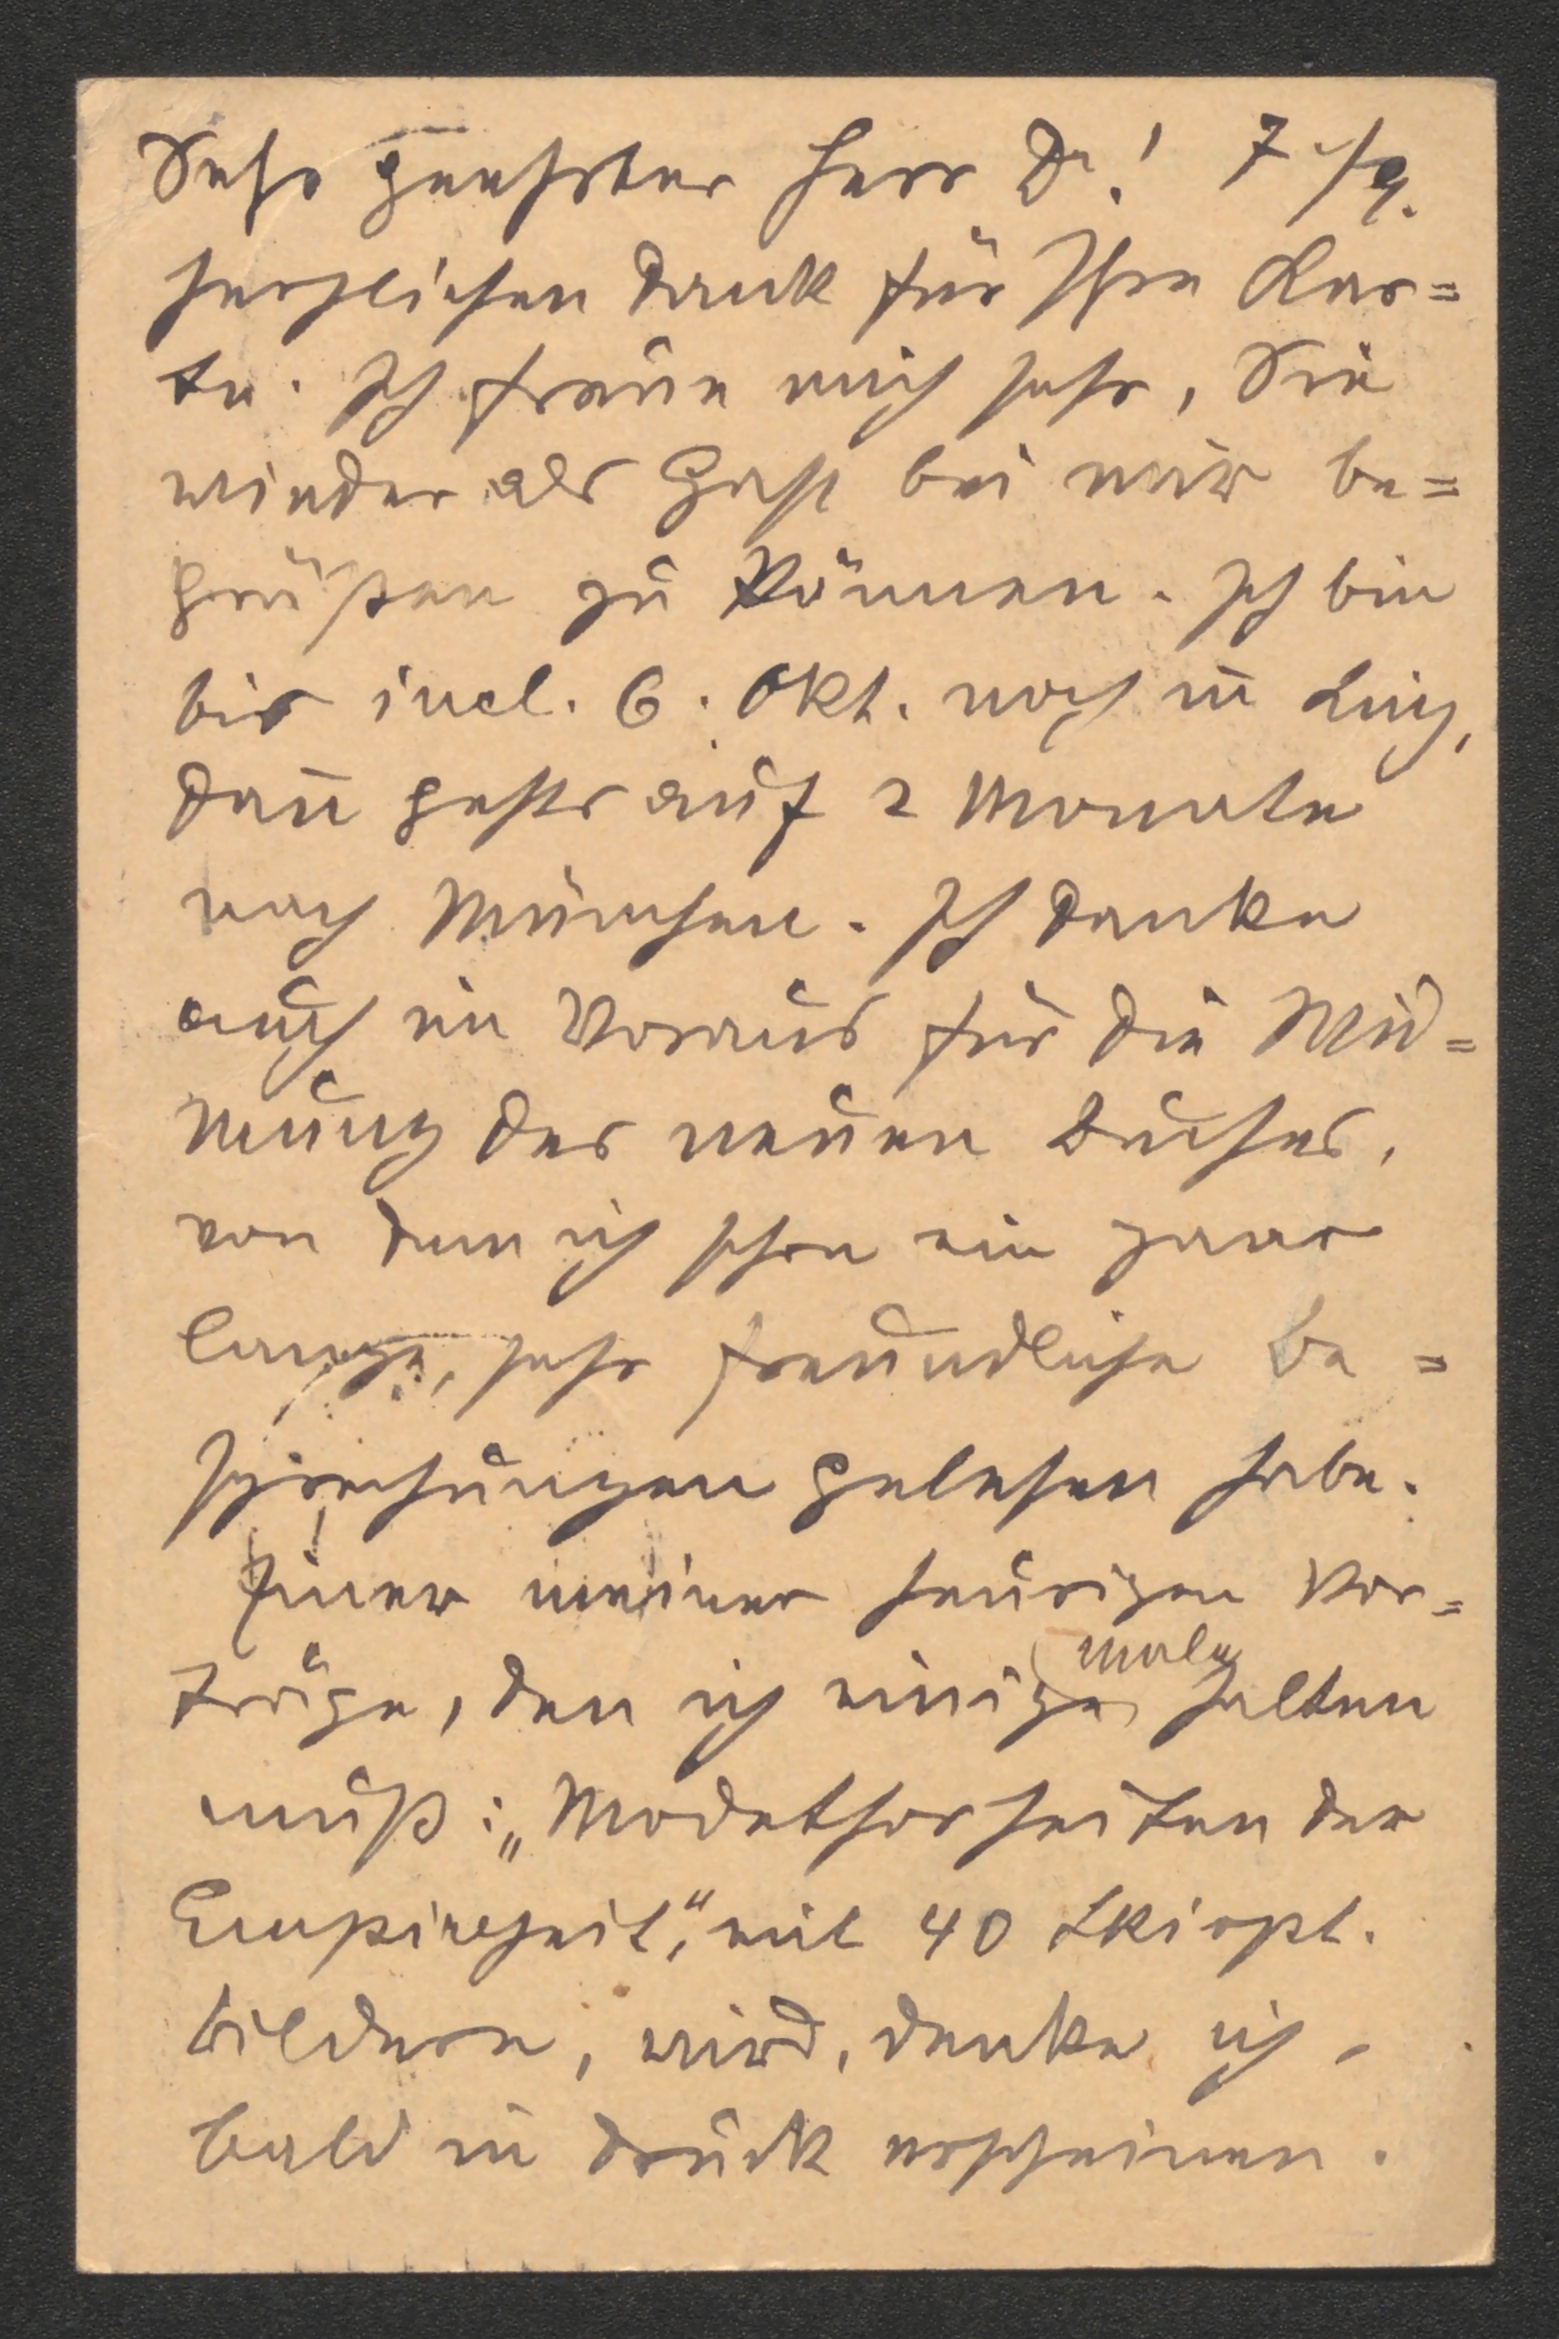 Sehr geehrter Herr Dr.! 7./9.
herzlichen Dank für Ihre Kar=
te. Ich freue mich sehr, Sie
wieder als Gast bei mir be=
grüßen zu können. Ich bin
bis incl. 6. Okt. noch in Linz,
dan̄ gehts auf 2 Monate
nach München. Ich danke
auch im Voraus für die Wid=
mung des neuen Buches,
von dem ich schon ein paar
lange, sehr freundliche Be=
sprechungen gelesen habe.
Einer meiner heurigen Vor=
träge, den ich einige male halten
muß: „Modethorheiten der
Empirezeit," mit 40 Skiopt.
bildern, wird, denke ich,
bald in Druck erscheinen.